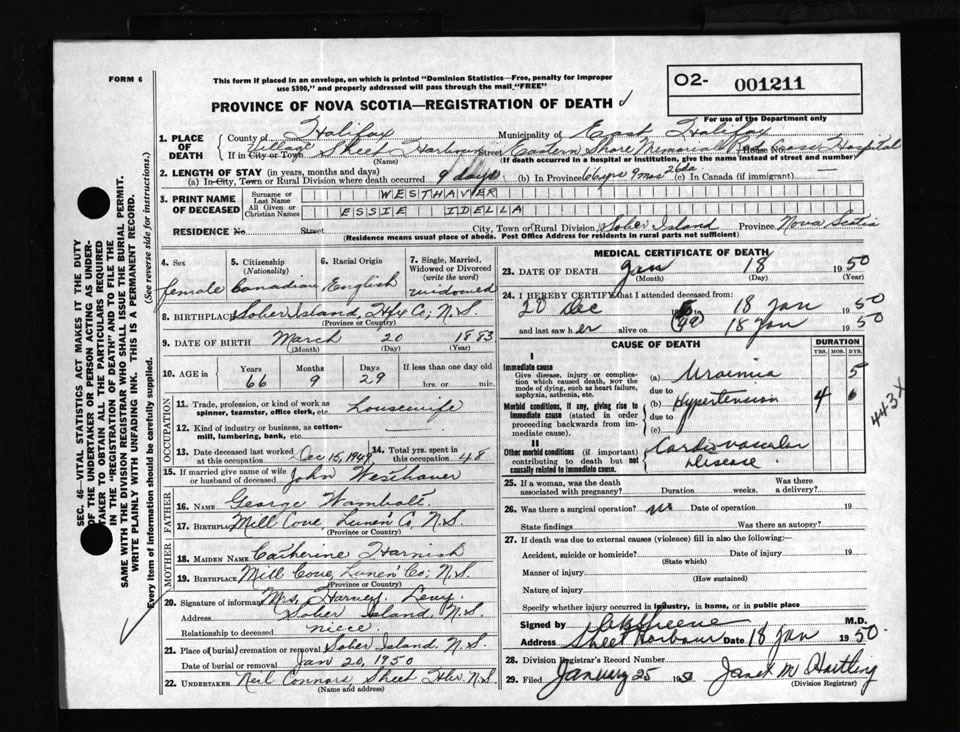 FORM 6
This form if placed in an envelope, on which is printed "Dominion Statistics—Free, penalty for improper
use $300," and properly addressed will pass through the mail "FREE"
O2- 001211
PROVINCE OF NOVA SCOTIA—REGISTRATION OF DEATH
For use of the Department only
1. PLACE OF DEATH
County of Halifax Municipality of East Halifax
Village
If in City or Town Sheet Harbour Street Eastern Shore Memorial Red Cross Hospital House No.
(Name) (If death occurred in a hospital or institution, give the name instead of street and number)
2. LENGTH OF STAY (in years, months and days)
(a) In City, Town or Rural Division where death occurred 9 days (b) In Province 66 yrs 9 mos 26 da (c) In Canada (if immigrant) —
3. PRINT NAME OF DECEASED
Surname or Last Name WESTHAVER
All Given or Christian Names ESSIE IDELLA
RESIDENCE No. Street City, Town or Rural Division Sober Island Province Nova Scotia
(Residence means usual place of abode. Post Office Address for residents in rural parts not sufficient)
4. Sex female
5. Citizenship (Nationality) Canadian
6. Racial Origin English
7. Single, Married, Widowed or Divorced (write the word) widowed
8. BIRTHPLACE Sober Island, Hfx Co; N.S.
(Province or Country)
9. DATE OF BIRTH March 20 1883
(Month) (Day) (Year)
10. AGE in Years 66 Months 9 Days 29 If less than one day old hrs. or min.
OCCUPATION
11. Trade, profession, or kind of work as spinner, teamster, office clerk, etc. Housewife
12. Kind of industry or business, as cotton-mill, lumbering, bank, etc.
13. Date deceased last worked at this occupation Dec 15, 1949
14. Total yrs. spent in this occupation 48
15. If married give name of wife or husband of deceased John Westhaver
FATHER
16. Name George Wambolt
17. Birthplace Mill Cove, Lunen Co, N.S.
(Province or Country)
MOTHER
18. MAIDEN NAME Catherine Harnish
19. BIRTHPLACE Mill Cove, Lunen' Co; N.S.
(Province or Country)
20. Signature of informant Mrs. Harvey Levy
Address Sober Island, N.S.
Relationship to deceased niece
21. Place (burial) cremation or removal Sober Island, N.S.
Date of burial or removal Jan 20, 1950
22. UNDERTAKER Neil Connors Sheet Hbr N.S.
(Name and address)
MEDICAL CERTIFICATE OF DEATH
23. DATE OF DEATH Jan 18 1950
(Month) (Day)
24. I HEREBY CERTIFY that I attended deceased from:
20 Dec (49) to 18 Jan 1950
and last saw her alive on 18 Jan 1950
CAUSE OF DEATH
DURATION
YRS. MOS. DYS.
I
Immediate cause
Give disease, injury or complication which caused death, NOT the mode of dying, such as heart failure, asphyxia, asthenia, etc.
(a) Uraemia 5
due to
(b) Hypertension 4
due to
(c)
Morbid conditions, if any, giving rise to immediate cause (stated in order proceeding backwards from immediate cause).
II
Other morbid conditions (if important) contributing to death but not causally related to immediate cause.
Cardiovascular
Disease
443X
25. If a woman, was the death associated with pregnancy? Duration weeks. Was there a delivery?
26. Was there a surgical operation? no Date of operation 19
State findings Was there an autopsy?
27. If death was due to external causes (violence) fill in also the following:—
Accident, suicide or homicide? Date of injury 19
(State which)
Manner of injury
(How sustained)
Nature of injury
Specify whether injury occurred in industry, in home, or in public place
Signed by M.D.
Address Sheet Harbour Date 18 Jan 1950.
28. Division Registrar's Record Number
29. Filed January 25 1950 Janet M Hartling
(Division Registrar)
SEC. 46—VITAL STATISTICS ACT MAKES IT THE DUTY
OF THE UNDERTAKER OR PERSON ACTING AS UNDER-
TAKER TO OBTAIN ALL THE PARTICULARS REQUIRED
IN THE "REGISTRATION OF DEATH" AND TO FILE THE
SAME WITH THE DIVISION REGISTRAR WHO SHALL ISSUE THE BURIAL PERMIT.
WRITE PLAINLY WITH UNFADING INK. THIS IS A PERMANENT RECORD.
Every item of information should be carefully supplied. (See reverse side for instructions.)